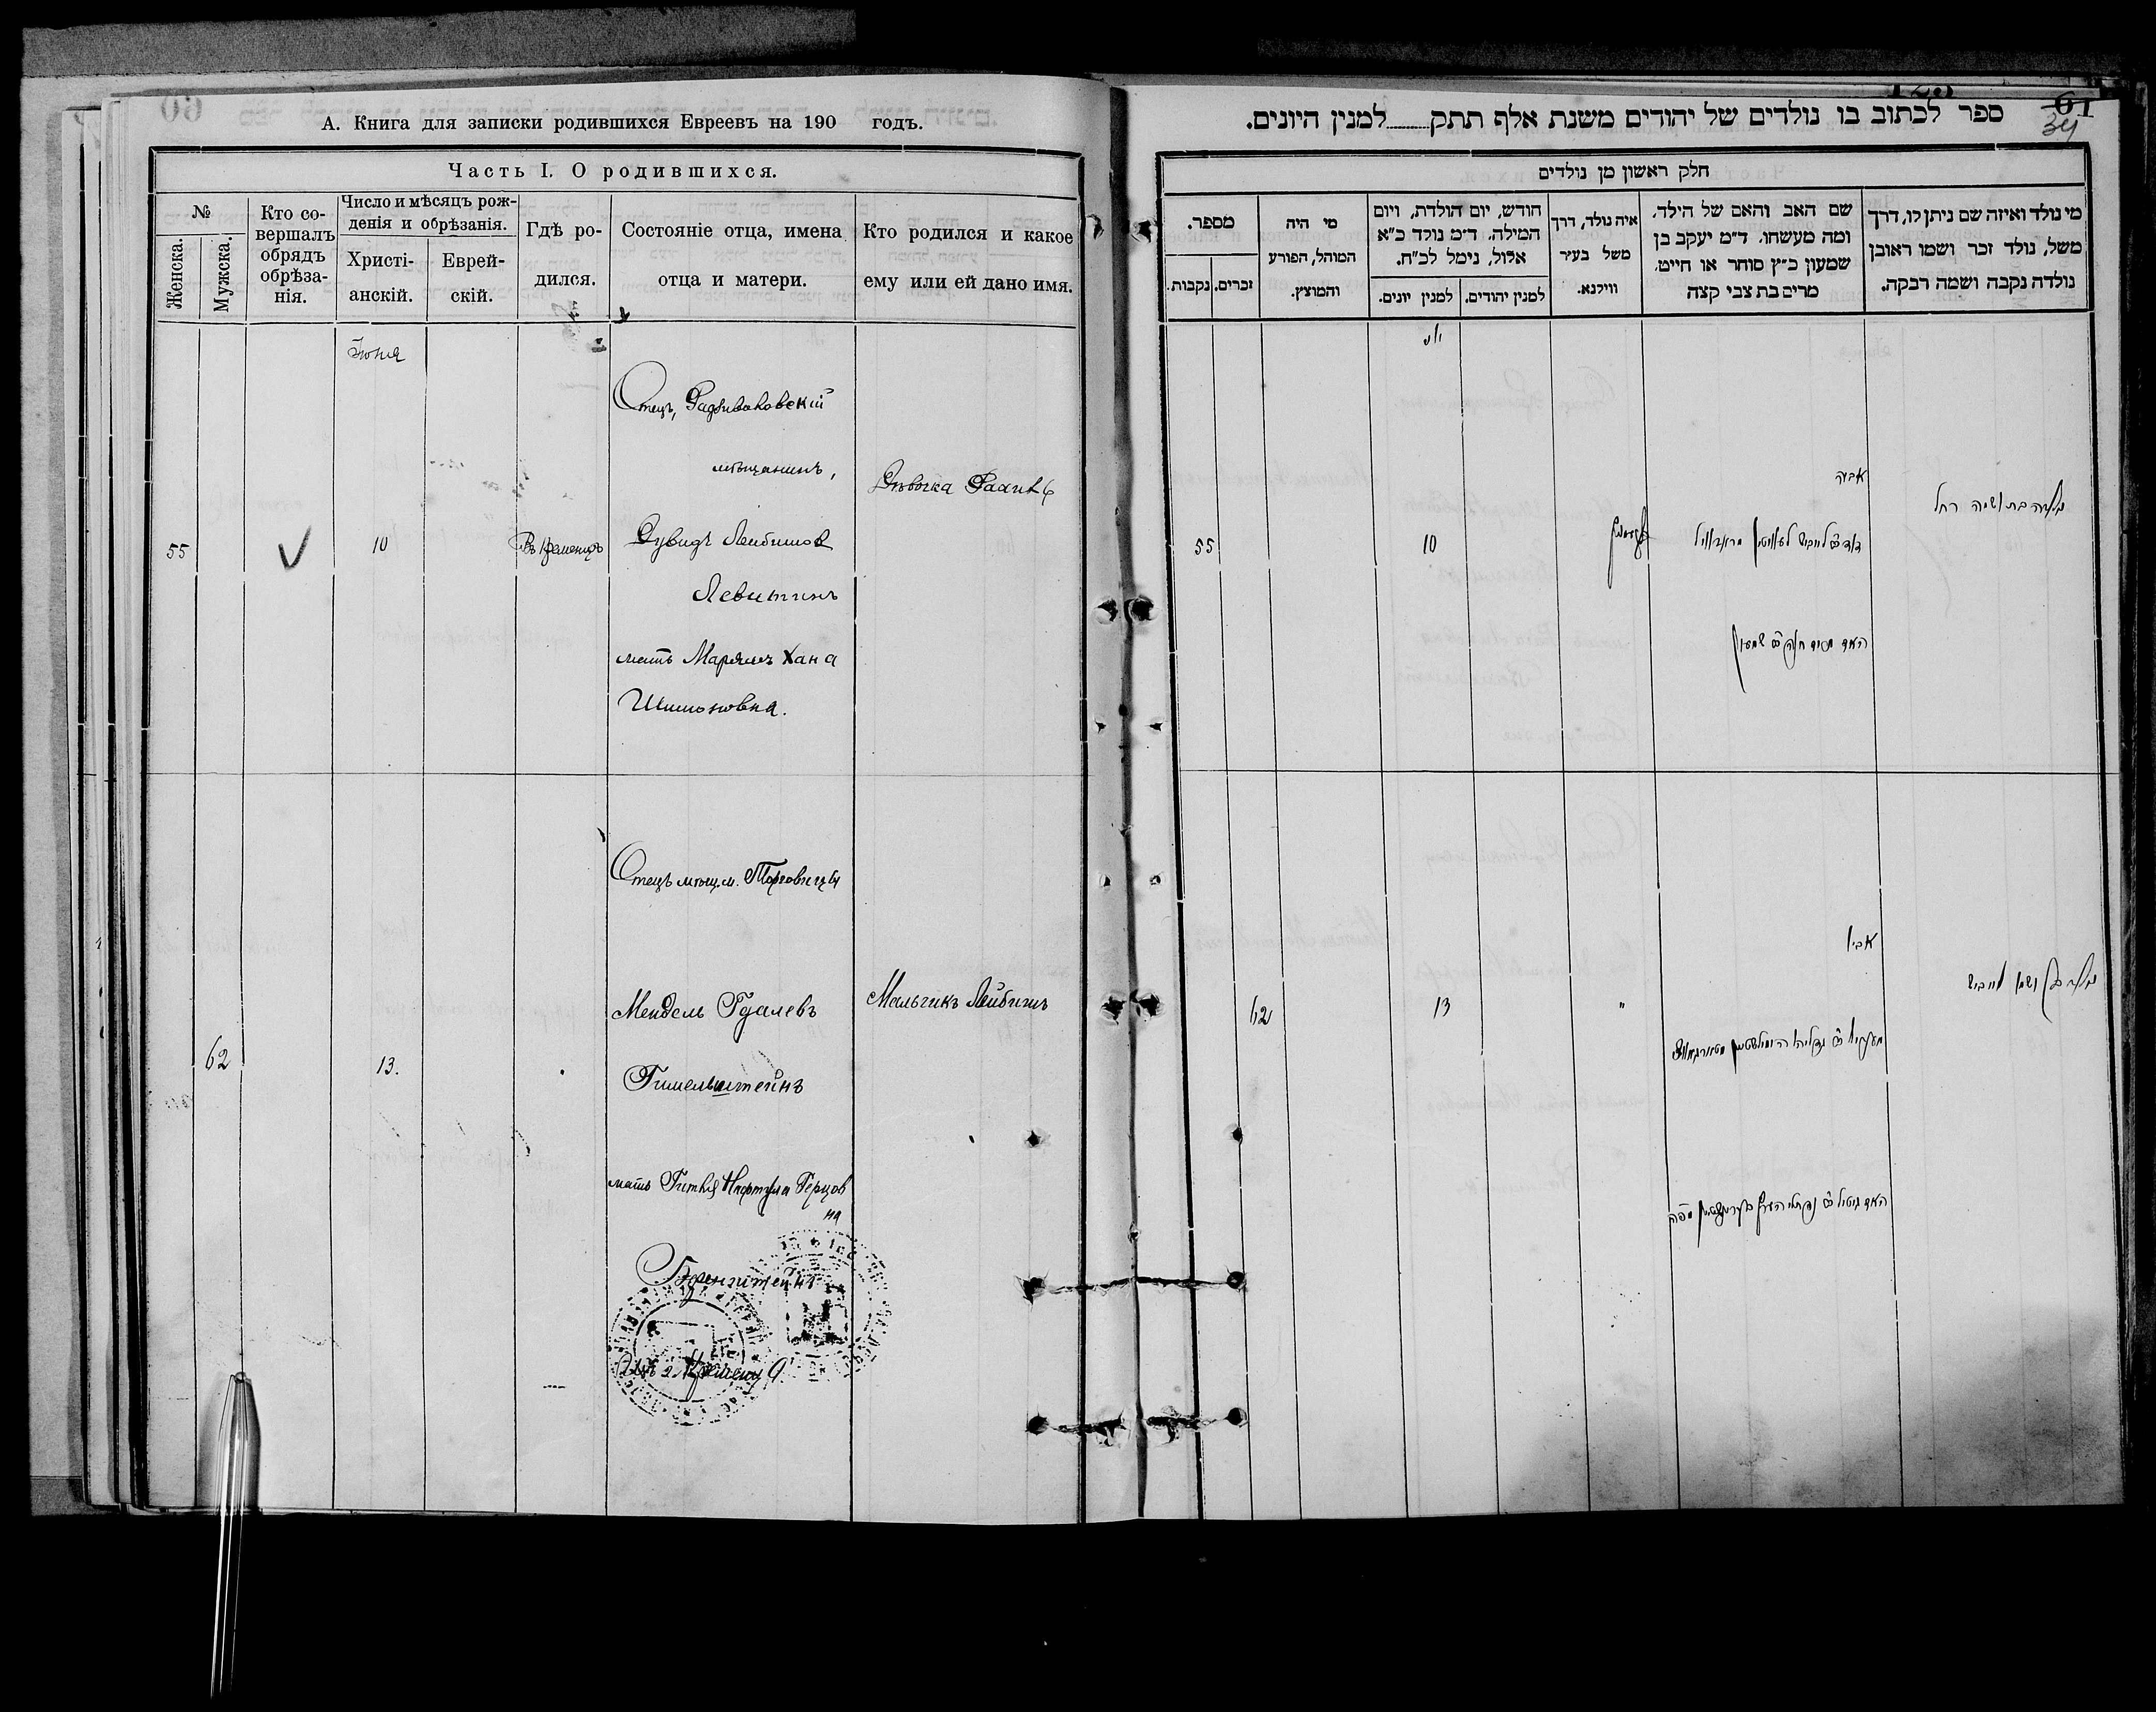 А. Книга для записки родившихся Евреевъ на 190 годъ.
Часть I. О родившихся.
№
Женска.
Мужска.
Кто со-
вершалъ
обрядъ
обрѣза-
нія.
Число и мѣсяцъ рож-
денія и обрѣзанія.
Христі-
анскій.
Еврей-
скій.
Гдѣ ро-
дился.
Состояніе отца, имена
отца и матери.
Кто родился и какое
ему или ей дано имя.
Іюня
55
10
Въ Кременцѣ
Отецъ, Радзивиловскій
мѣщанинъ,
Дувидъ Лейбишов
Левитинъ
мать Марьямъ Хана
Шимоновна.
Дѣвочка
62
13.
Отецъ мѣщ. м. Торговицы
Мендель Гдалевъ
Гимельштейнъ
мать Гитля Нафтула Герцов
на
Беренштейнъ
Мальчикъ Лейбишъ
60
61
34
ספר לכתוב בו נולדים של יהודים משנת אלף תתק למנין היונים.
חלק ראשון מן נולדים
מי נולד ואיזה שם ניתן לו, דרך
משל, נולד זכר ושמו ראובן
נולדה נקבה ושמה רבקה.
שם האב והאם של הילד,
ומה מעשהו. ד״מ יעקב בן
שמעון כ״ץ סוחר או חייט,
מרים בת צבי קצה
איה נולד, דרך
משל בעיר
ווילנא.
חודש, יום הולדת, ויום
המילה. ד״מ נולד כ״א
אלול, נימל לכ״ח.
למנין יהודים.
למנין יונים.
מי היה
המוהל, הפורע
והמוצץ.
מספר.
זכרים.
נקבות.
יוני
נולדה בת ושמה רחל
אביה
האם מרים חנה
10
55
נולד בן ושמו לייביש
אביו
"
13
62